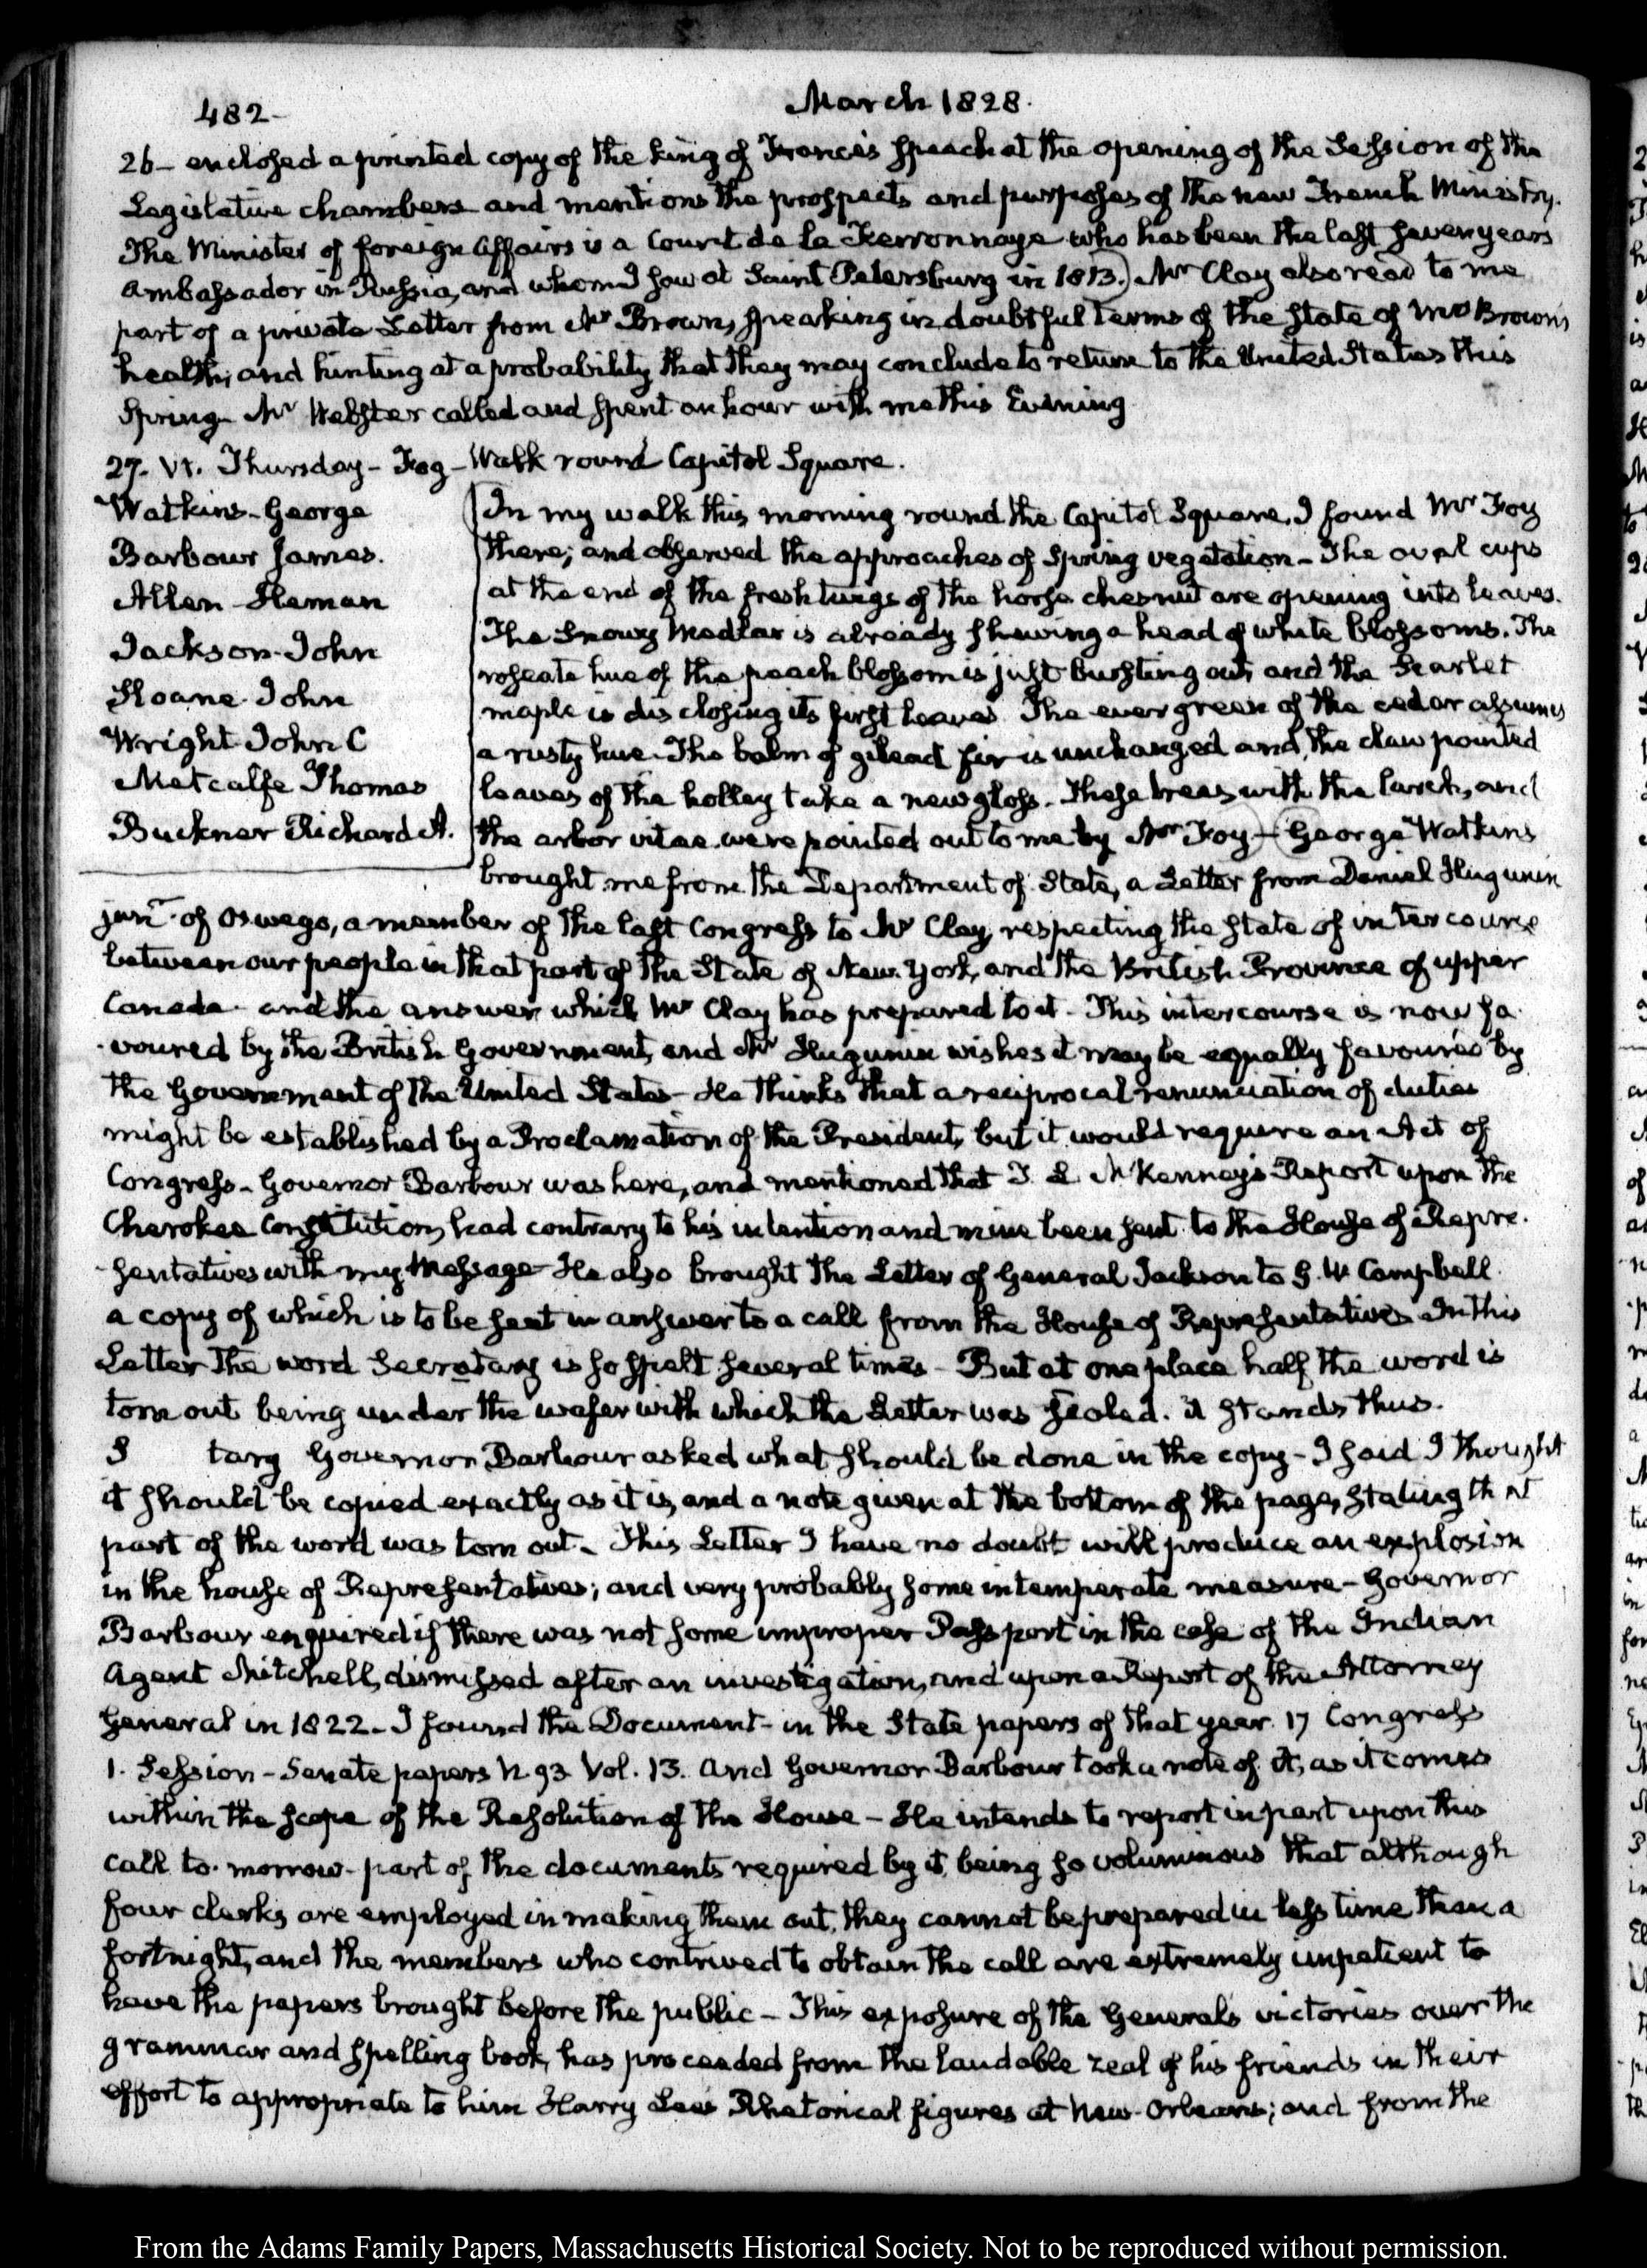 482-
March 1828.
26- enclosed a printed copy of the king of France's speech at the opening of the Session of the
Legislative chambers and mentions the prospects and purposes of the new French Ministry.
The Minister of foreign Affairs is a Count de la Ferronnaye who has been the last seven years
Ambassador in Russia, and whom I saw at Saint Petersburg in 1813.) Mr Clay also read to me
part of a private Letter from Mr Brown, speaking in doubtful terms of the state of Mrs Brown's
health; and hinting at a probability that they may conclude to return to the United States this
Spring- Mr Webster called and spent an hour with me this Evening
27- VI. Thursday- Fog- Walk round Capitol Square.
Watkins-George
Barbour James.
Allen-Heman
Jackson-John
Sloane-John
Wright John C
Metcalfe Thomas
Buckner Richard A.
In my walk this morning round the Capitol Square, I found Mr Foy
there; and observed the approaches of Spring vegetation- The oval cups
at the end of the fresh twigs of the horse chesnut are opening into leaves.
The Snowy Medlar is already shewing a head of white blossoms. The
roseate hue of the peach blossom is just bursting out and the Scarlet
maple is disclosing its first leaves. The ever green of the cedar assumes
a rusty hue- The balm of gilead fir is unchanged and the claw pointed
leaves of the holley take a new gloss. These trees with the larch, and
the arbor vitae were pointed out to me by Mr Foy- George Watkins
brought me from the Department of State, a Letter from Daniel Hugunin
junr. of Oswego, a member of the last Congress to Mr Clay, respecting the state of intercourse
between our people in that part of the State of New York, and the British Province of upper
Canada- and the answer which Mr Clay has prepared to it- This intercourse is now fa-
-voured by the British Government, and Mr Hugunin wishes it may be equally favoured by
the Government of the United States- He thinks that a reciprocal renunciation of duties
might be established by a Proclamation of the President, but it would require an Act of
Congress- Governor Barbour was here, and mentioned that T. L. McKenney's Report upon the
Cherokee Constitution, had contrary to his intention and mine been sent to the House of Repre-
-sentatives with my Message- He also brought the Letter of General Jackson to G. W Campbell
a copy of which is to be sent in answer to a call from the House of Representatives In this
Letter the word Secratary is so spelt several times- But at one place half the word is
torn out being under the wafer with which the Letter was sealed. it stands thus.
S tary Governor Barbour asked what should be done in the copy- I said I thought
it should be copied exactly as it is, and a note given at the bottom of the page, stating that
part of the word was torn out- This Letter I have no doubt will produce an explosion
in the house of Representatives; and very probably some intemperate measure- Governor
Barbour enquired if there was not some improper Passport in the case of the Indian
Agent Mitchell, dismissed after an investigation, and upon a Report of the Attorney
General in 1822- I found the Document in the State papers of that year. 17 Congress
1. Session- Senate papers N. 93 Vol. 13. and Governor Barbour took a note of it, as it comes
within the scope of the Resolution of the House- He intends to report in part upon this
call to-morrow- part of the documents required by it being so voluminous that although
four clerks are employed in making them out, they cannot be prepared in less time than a
fortnight, and the members who contrived to obtain the call are extremely impatient to
have the papers brought before the public- This exposure of the General's victories over the
grammar and spelling book, has proceeded from the laudable zeal of his friends in their
effort to appropriate to him Harry Lee's Rhetorical figures at New-Orleans; and from the
From the Adams Family Papers, Massachusetts Historical Society. Not to be reproduced without permission.